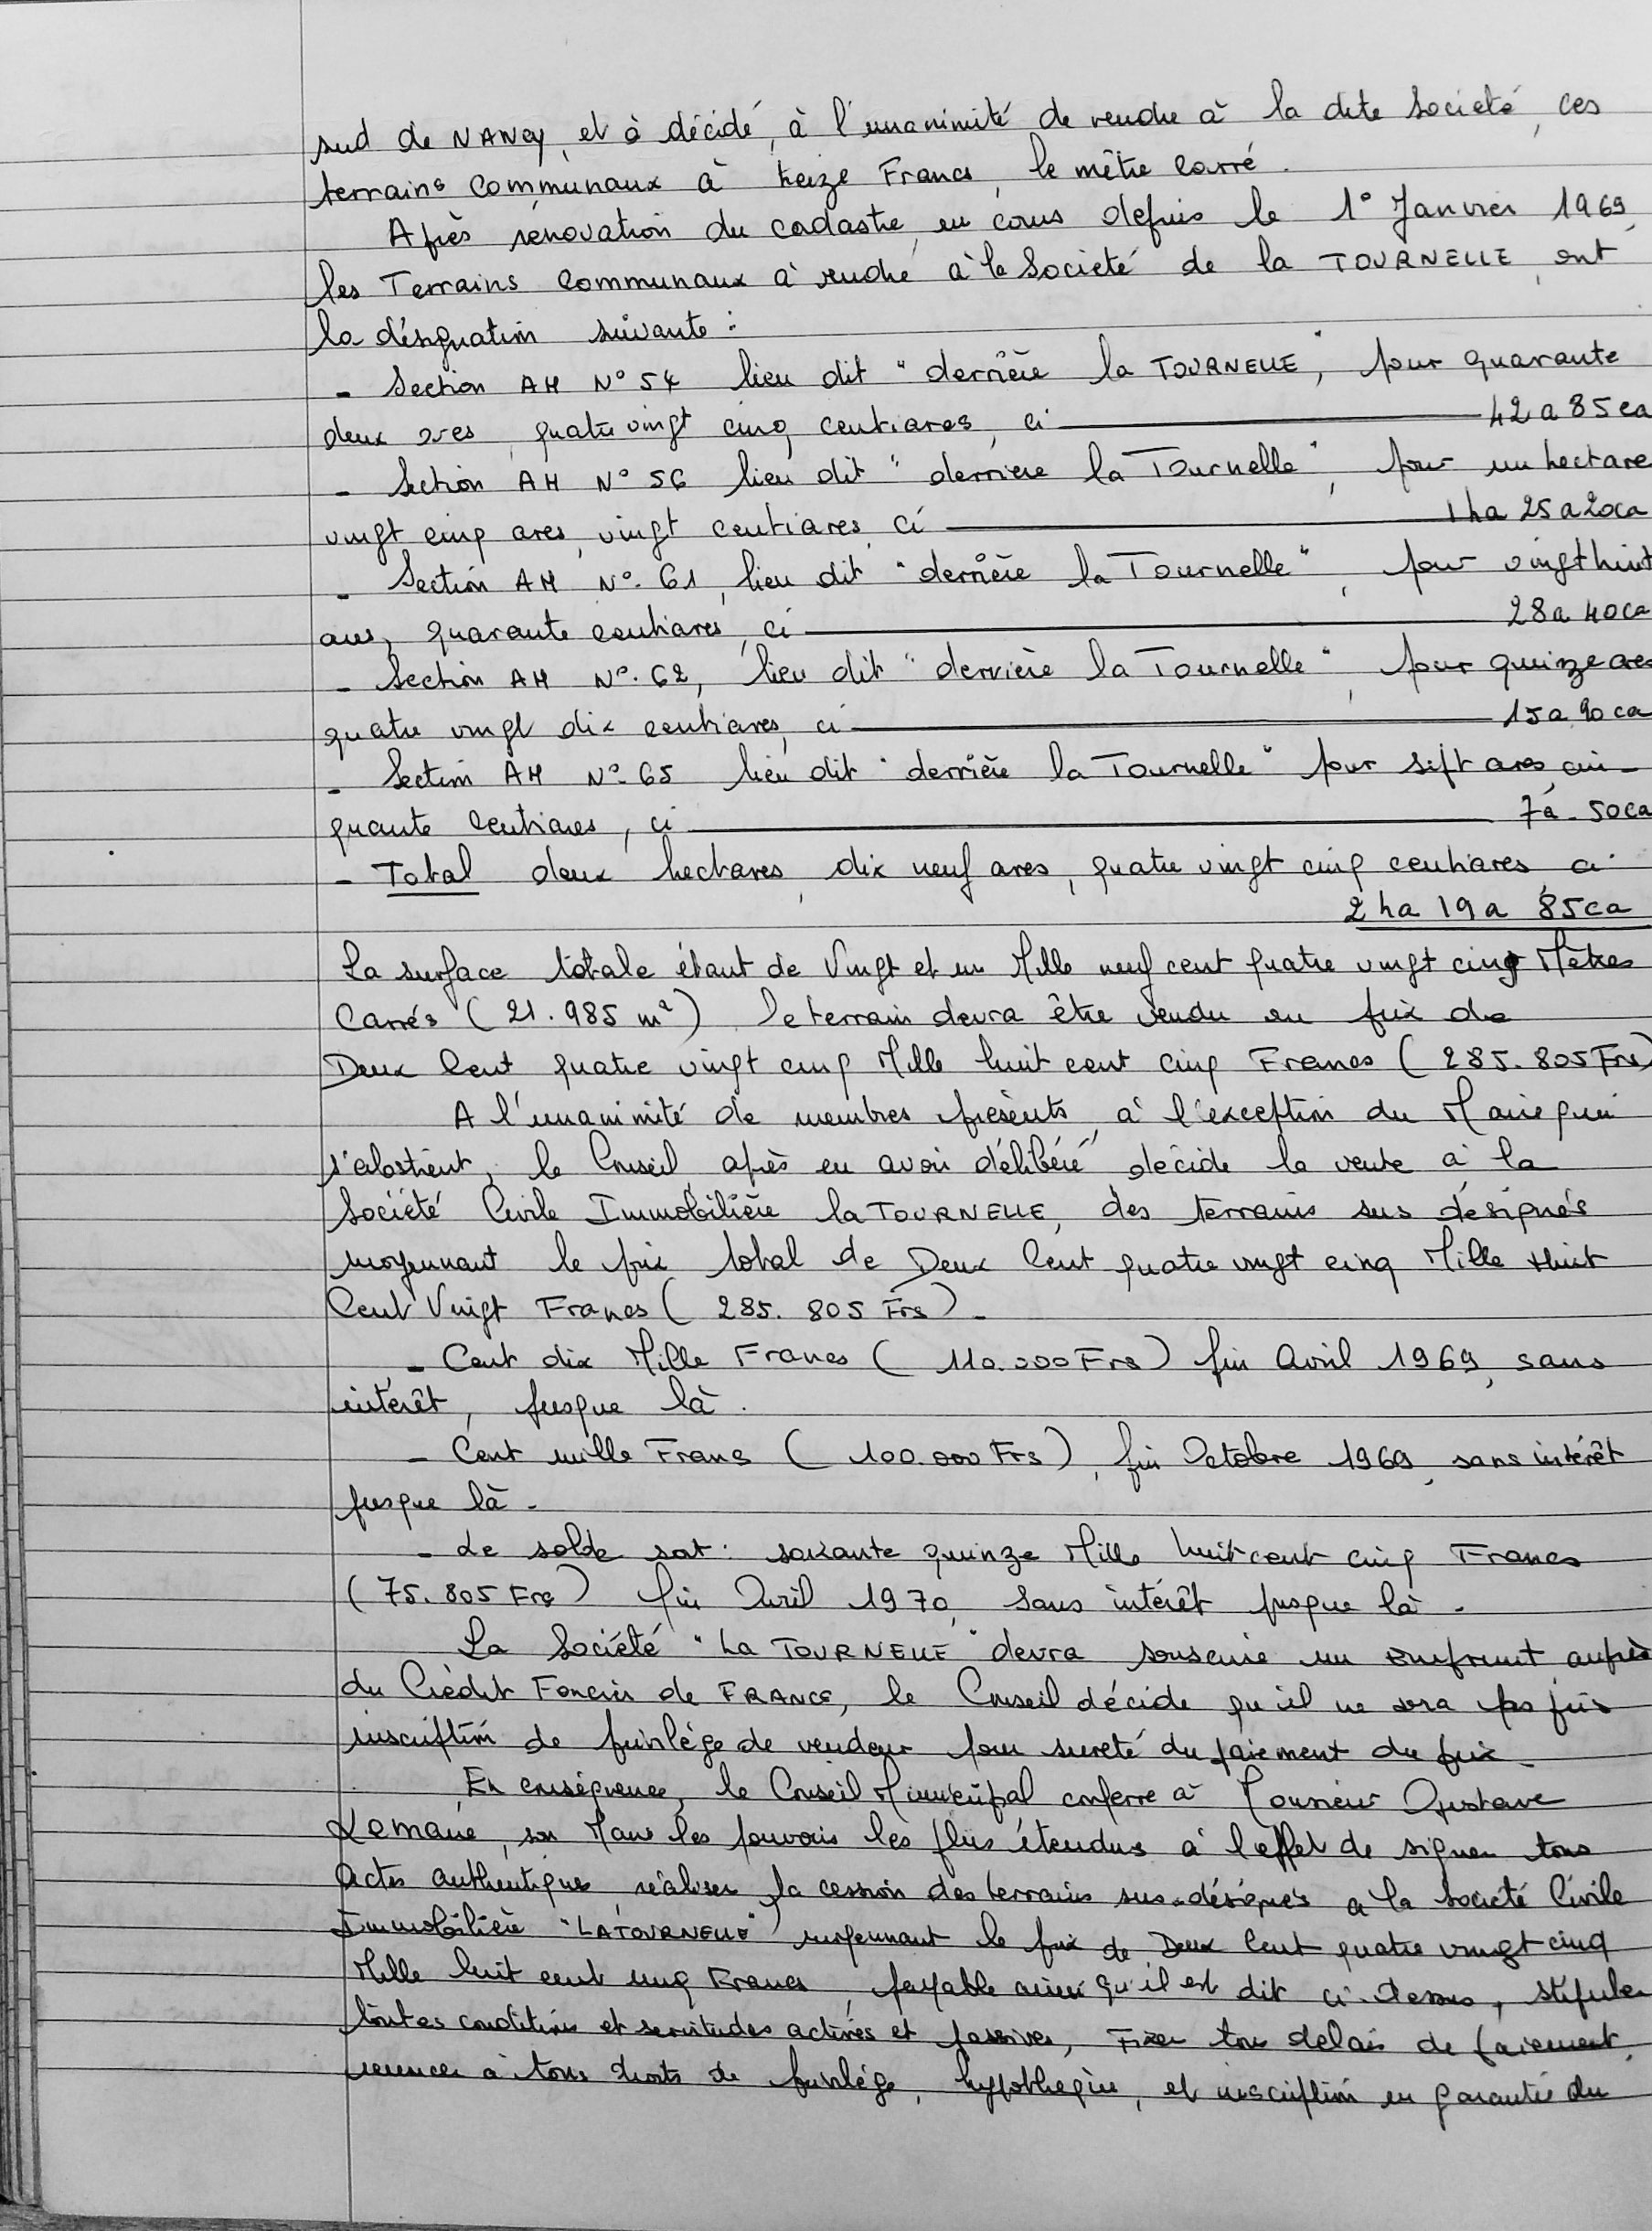 sud de NANCY, et à décidé, à l'unanimité de vendre à la dite Société, ces
terrains communaux à treize Francs, le mêtre carré.
Après rénovation du cadastre, en cours depuis le 1° Janvier 1969,
les Terrains Communaux à vendre à la Société de la TOURNELLE, ont
la désignation suivante :
- Section AH N° 54 lieu dit "derrière la TOURNELLE", pour quarante
deux ares, quatre vingt cinq centiares, ci 42 a 85 ca
- Section AH N° 56 lieu dit "derriere la Tournelle", pour un hectare
vingt cinq ares, vingt centiares, ci 1 ha 25 a 20 ca
- Section AH N° 61, lieu dit "derrière la Tournelle", pour vingt huit
ares, quarante centiares, ci 28 a 40 ca
- Section AH N° 62, lieu dit "derrière la Tournelle", pour quinze ares
quatre vingt dix centiares, ci 15 a 90 ca
- Section AH N° 65 lieu dit "derrière la Tournelle" pour sept ares, cin-
quante centiares, ci 7 a - 50 ca
- Total deux hectares, dix neuf ares, quatre vingt cinq centiares ci
2 ha 19 a 85 ca
La surface totale étant de Vingt et un Mille neuf cent quatre vingt cinq Mètres
Carrés (21.985 m²) le terrain devra être vendu au prix de
Deux Cent quatre vingt cinq Mille huit cent cinq Francs (285.805 Frs)
A l'unanimité de membres présents, à l'exception du Maire qui
s'abstient, le Conseil, après en avoir délibéré, décide la vente à la
Société Civile Immobilière la TOURNELLE, des terrains sus désignés
moyennant le prix total de Deux Cent quatre vingt cinq Mille Huit
Cent Vingt Francs (285.805 Frs) -
- Cent dix Mille Francs (110.000 Frs) fin Avril 1969, sans
intérêt, jusque là.
- Cent mille Francs (100.000 Frs), fin Octobre 1969, sans intérêt
jusque là -
- Le solde soit : soixante quinze Mille huit cent cinq Francs
(75.805 Frs) fin Avril 1970, sans intérêt jusque là -
La Société "La TOURNELLE" devra souscrire un emprunt auprès
du Crédit Foncier de FRANCE, le Conseil décide qu'il ne sera pas pris
inscription de privilège de vendeur pour sureté du paiement du prix -
En conséquence, le Conseil Municipal conferre à Monsieur Gustave
Lemaire, son Maire les pouvoirs les plus étendus à l'effet de signer tous
Actes authentiques réaliser la cession des terrains sus-désignés à la Société Civile
Immobilière "LA TOURNELLE" moyennant le prix de Deux Cent quatre vingt cinq
Mille huit cent cinq Francs, payable ainsi qu'il est dit ci-dessus, stipuler
toutes conditions et servitudes actives et passives, Fixer tous delais de paiement,
renoncer à tous droits de privilège, hypothèque, et inscription en garantie du